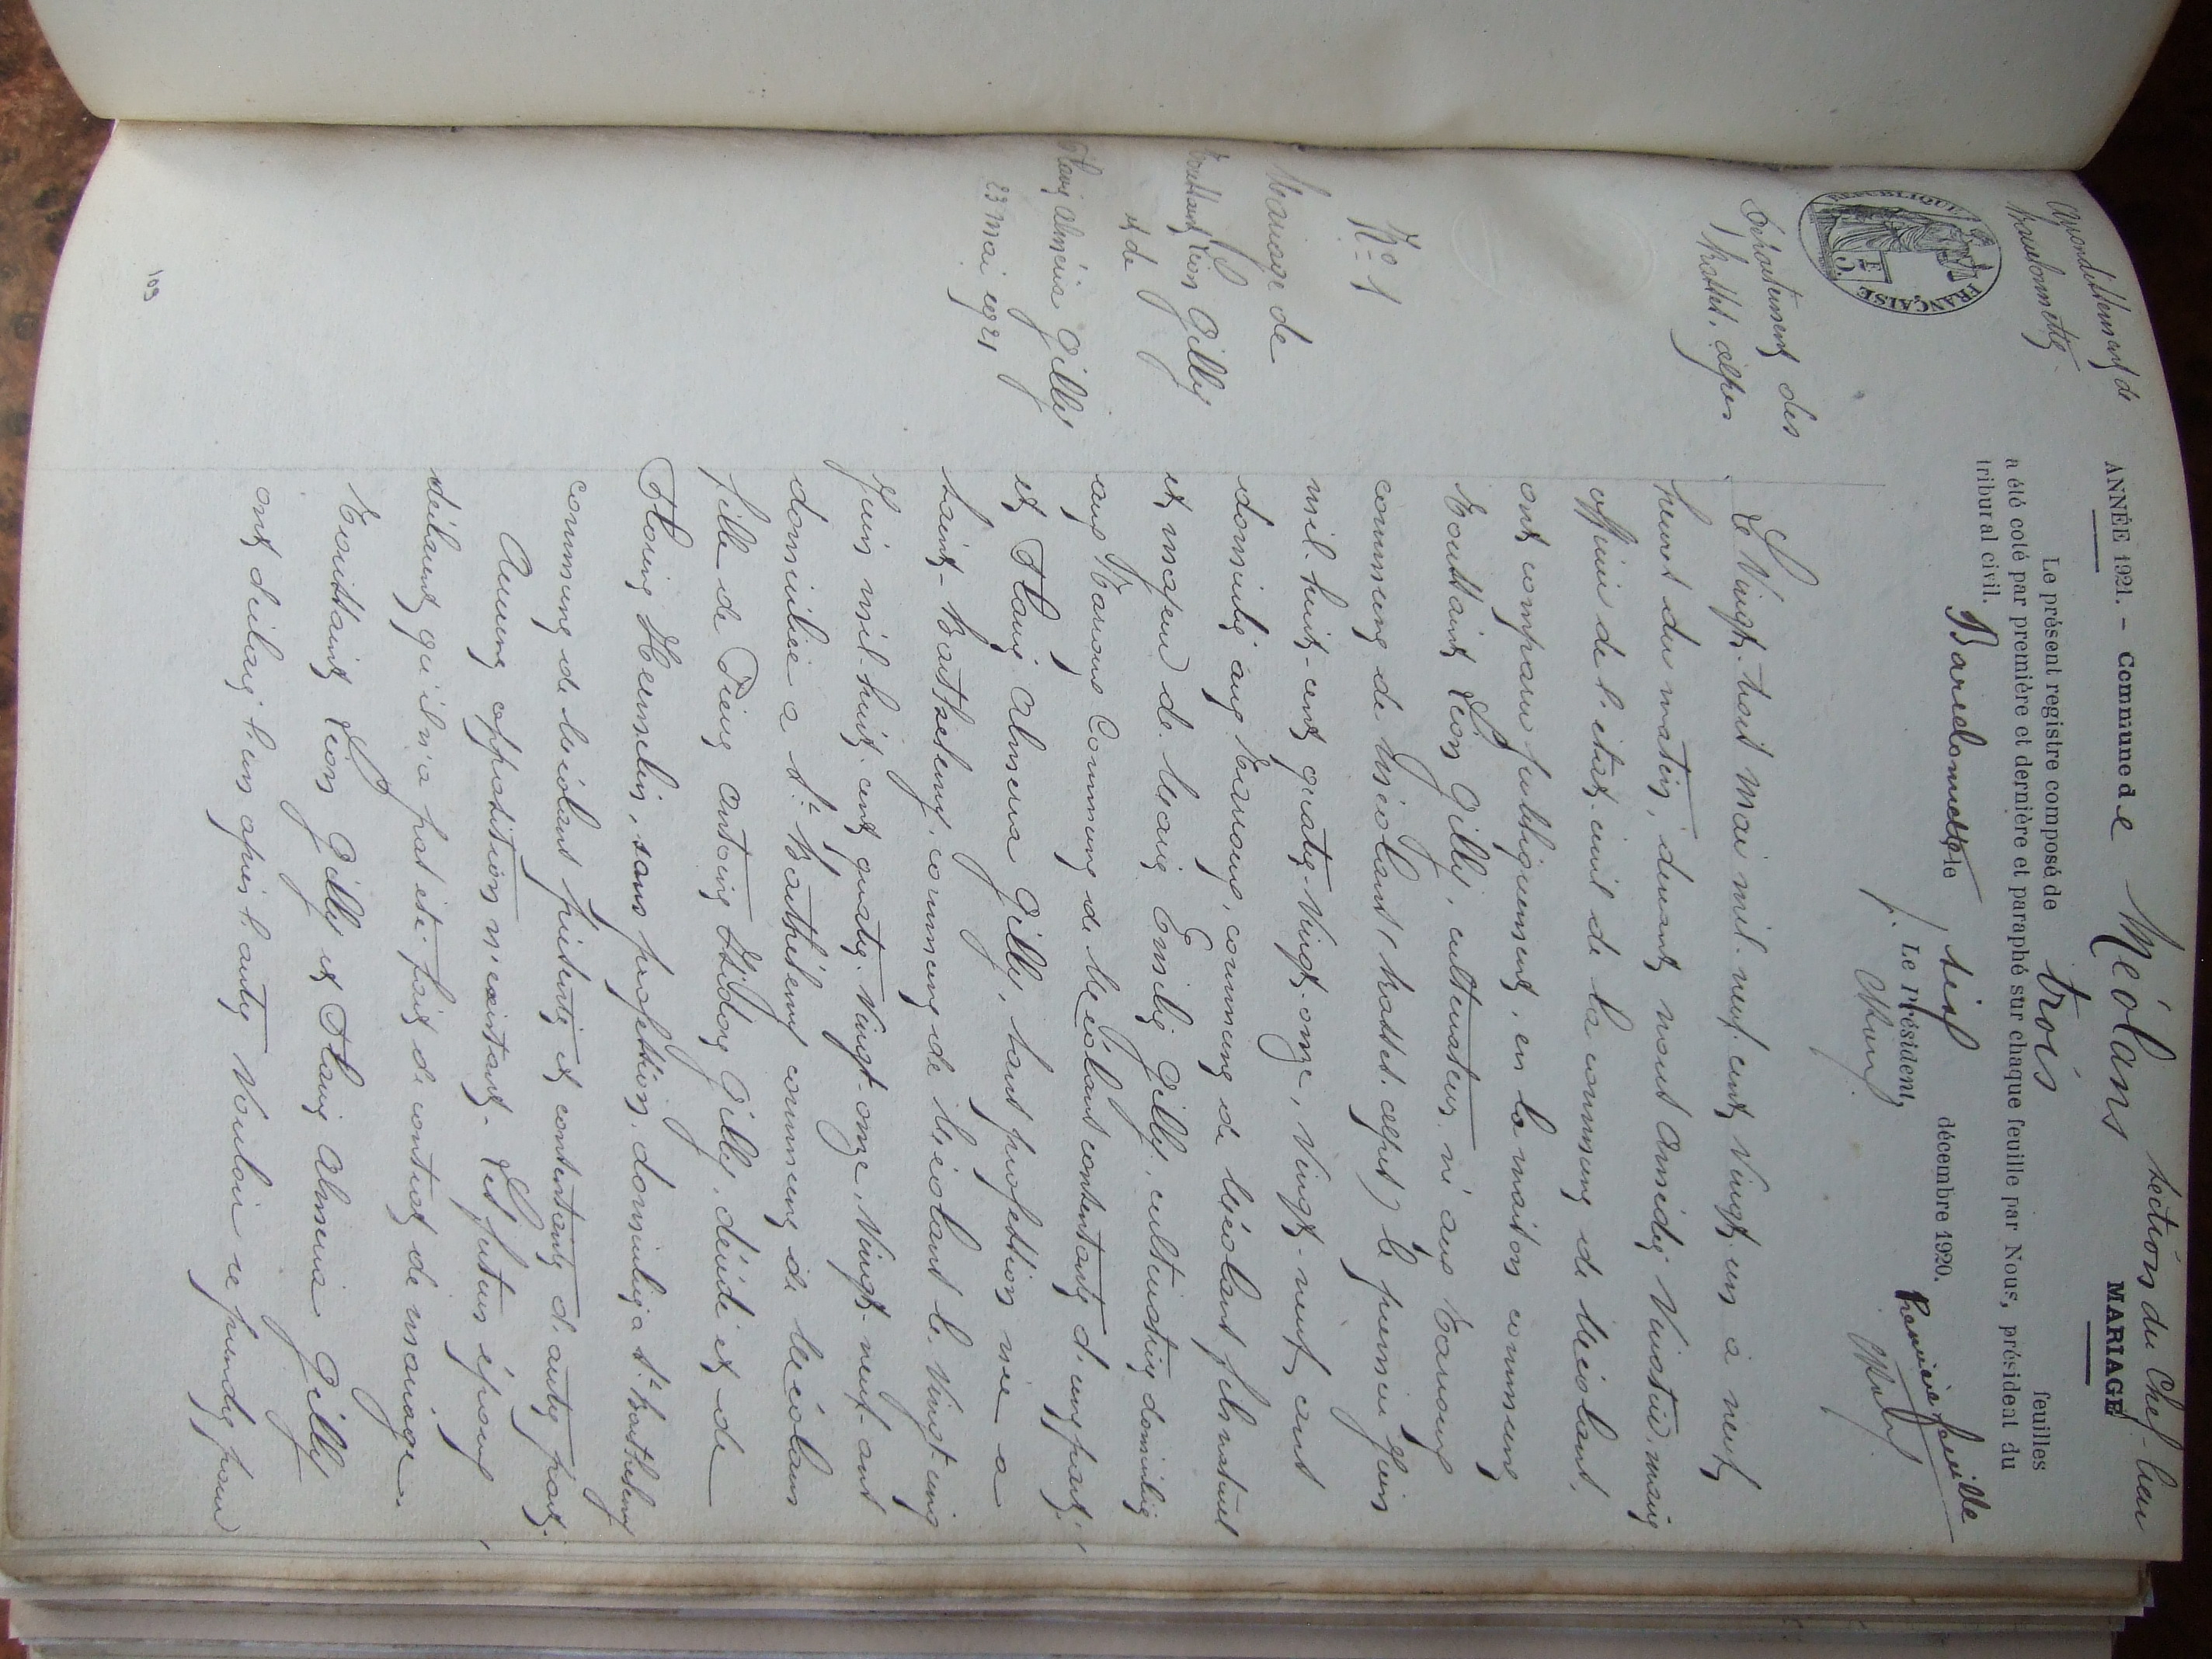 Arrondissement de
Barcelonnette
RÉPUBLIQUE FRANÇAISE
Département des
Basses. Alpes
section du Chef-lieu
ANNÉE 1921. - Commune de Méolans MARIAGE
Le présent registre composé de trois feuilles
a été coté par première et dernière et paraphé sur chaque feuille par Nous, président du
tribunal civil.
Barcelonnette le sept décembre 1920.
Première feuille
Le Président,
N° 1
Mariage de
Léon Gilly
et de
Flavie Alméria Gilly
23 mai 1921
Le Vingt. trois Mai mil. neuf. cent Vingt. un à neuf
heures du matin, devant nous Amédée maire
officier de l'état. civil de la commune de Méolans,
ont comparu publiquement, en la maison commune
Léon Gilly, cultivateur, né aux
commune de Méolans (Basses. Alpes) le premier Juin
mil. huit. cent quatre. Vingt. onze, Vingt. neuf ans
domicilié aux commune de Méolans fils naturel
et majeur de Marie Gilly, cultivatrice domiciliée
aux commune de Méolans contentante d'une part;
et Flavie Almeria Gilly, sans profession née a
Saint. Barthélemy, commune de Méolans le Vingt. cinq
Juin mil. huit. cent quatre. Vingt. onze, Vingt. neuf. ans
domiciliée a St. Barthélemy commune de Méolans
fille de antoine Gilly, décédé et de
sans profession, domiciliée a St. Barthélemy
commune de Méolans présente et contentante d'autre part.
Aucune opposition n'existant. Les futurs époux
déclarent qu'il n'a pas été fait de contrat de mariage.
Léon Gilly et Flavie Almeria Gilly
ont déclaré l'un après l'autre Vouloir se prendre pour
109